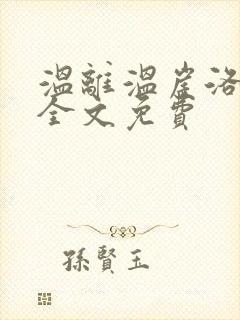 溫離溫崖洛
全文免費
孫賢玉